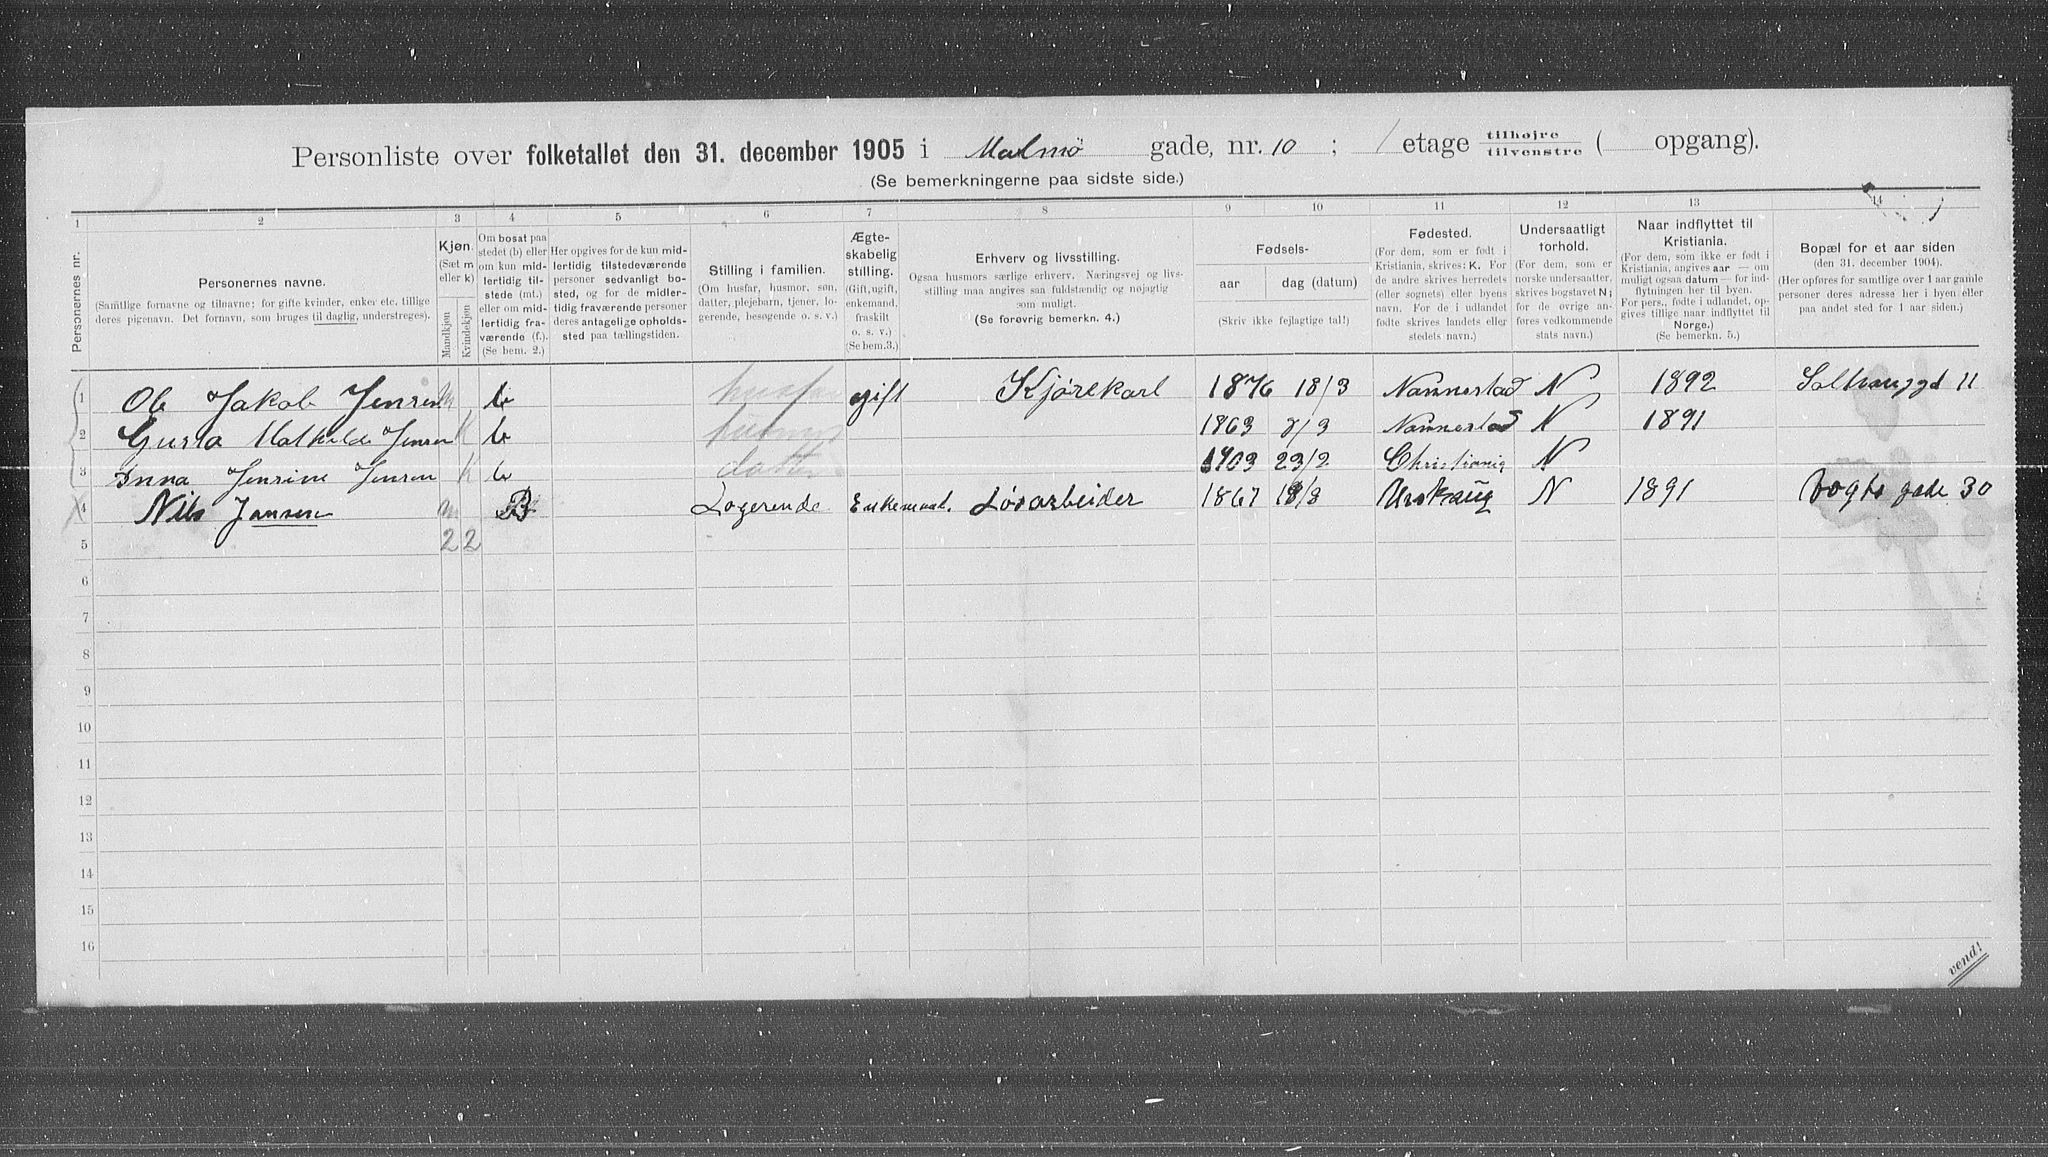 Personliste over folketallet den 31. december 1905 i Malmø gade, nr. 10 ; / etage tilhøjre tilvenstre ( opgang).
(Se bemerkningerne paa sidste side.)
1 2 3 4 5 6 7 8 9 10 11 12 13 14
Personernes nr.
Personernes navne.
(Samtlige fornavne og tilnavne; for gifte kvinder, enker etc. tillige
deres pigenavn. Det fornavn, som bruges til daglig, understreges).
Kjøn.
(Sæt m
eller k)
Mandkjøn
Kvindekjøn
Om bosat paa
stedet (b) eller
om kun mid-
lertidig til-
stede (mt.)
eller om mid-
lertidig fra-
værende (f.).
(Se bem. 2.)
Her opgives for de kun mid-
lertidig tilstedeværende
personer sedvanligt bo-
sted, og for de midler-
tidig fraværende personer
deres antagelige opholds-
sted paa tællingstiden.
Stilling i familien.
(Om husfar, husmor, søn,
datter, plejebarn, tjener, lo-
gerende, besøgende o. s. v.)
Ægte-
skabelig
stilling.
(Gift, ugift,
enkemand,
fraskilt
o. s. v.)
(Se bem.3.)
Erhverv og livsstilling.
Ogsaa husmors særlige erhverv. Næringsvej og livs-
stilling maa angives saa fuldstændig og nøjagtig
som muligt.
(Se forøvrig bemerkn. 4.)
Fødsels-
aar dag (datum)
(Skriv ikke fejlagtige tal!)
Fødested.
(For dem, som er født i
Kristiania, skrives: K. For
de andre skrives herredets
(eller sognets) eller byens
navn. For de i udlandet
fødte skrives landets eller
stedets navn.)
Undersaatligt
forhold.
(For dem, som er
norske undersaatter,
skrives bogstavet N;
for de øvrige an-
føres vedkommende
stats navn.)
Naar indflyttet til
Kristiania.
(For dem, som ikke er født i
Kristiania, angives aar — om
muligt ogsaa datum — for ind-
flytningen her til byen.
For pers., fødte i udlandet, op-
gives tillige naar indflyttet til
Norge.)
(Se bemerkn. 5.)
Bopæl for et aar siden
(den 31. december 1904).
(Her opføres for samtlige over 1 aar gamle
personer deres adresse her i byen eller
paa andet sted for 1 aar siden.)
1 Ole Jakob Jensen m b husfar gift Kjørekarl 1876 18/3 Nannestad N 1892 11
2 Mathilde Jensen K b husmor 1863 /3 Nannestad N 1891
3 Jensine Jensen K b datter 1903 23/2 Christiania N
4 Nils Jansen m B Logerende Enkemand. Løsarbeider 1867 18/3 Urskaug N 1891 Vogts gade 30
5 2 2
6
7
8
9
10
11
12
13
14
15
16
vend!